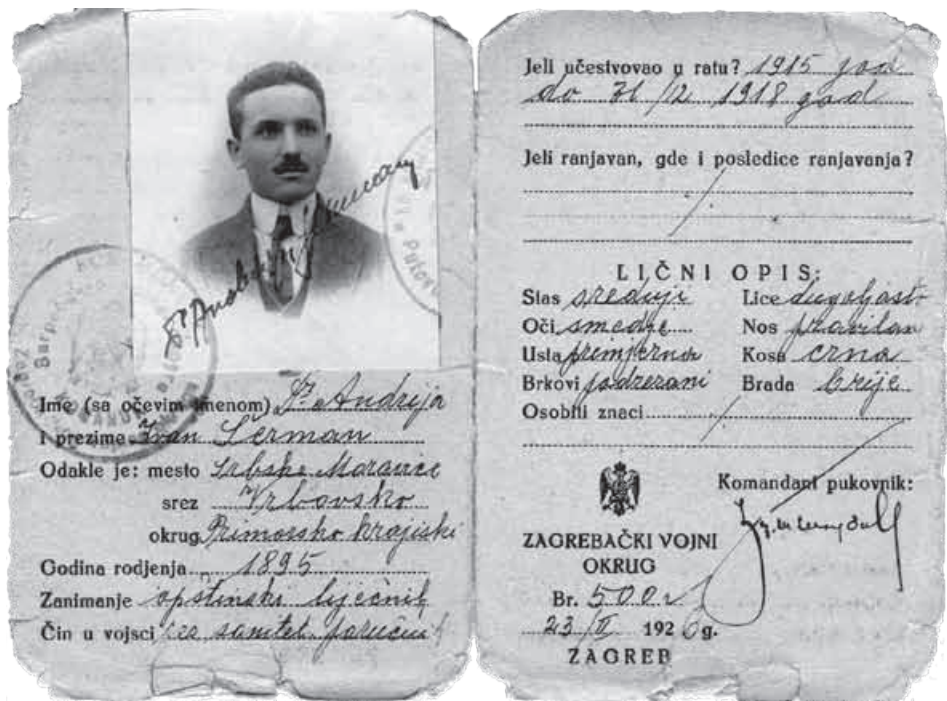 Dr Andrija
Ime (sa očevim imenom) Dr Andrija
i prezime Ivan Šerman
Odakle je: mesto Srbske Moravice
srez Vrbovsko
okrug Primorsko krajiški
Godina rodjenja 1895
Zanimanje opštinski liječnik
Čin u vojsci rez sanitet. poručnik
Jeli učestvovao u ratu? 1915 god
do 31/12 1918 god
Jeli ranjavan, gde i posledice ranjavanja?
LIČNI OPIS:
Stas srednji Lice dugoljasto
Oči smedje Nos pravilan
Usta primjerna Kosa crna
Brkovi podrezani Brada brije
Osobiti znaci
Komandant pukovnik:
ZAGREBAČKI VOJNI
OKRUG
Br. 500
23/II 1926 g.
ZAGREB